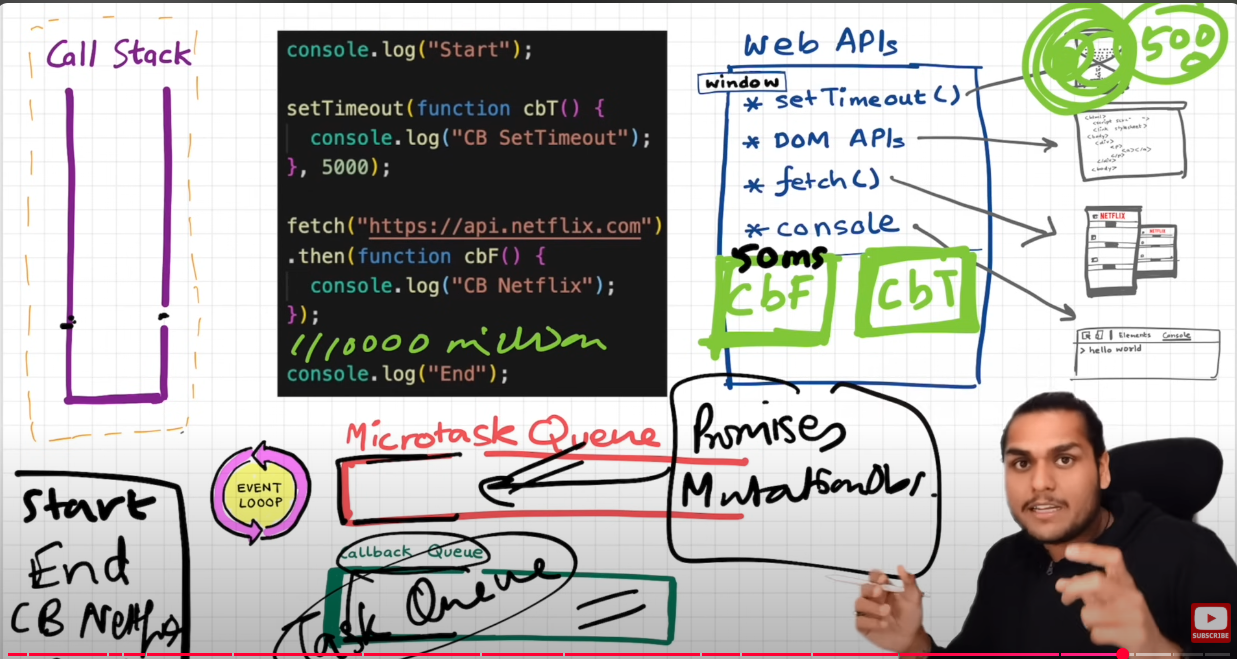 Call Stack
console.log("Start");
setTimeout(function cbT() {
console.log("CB SetTimeout");
}, 5000);
fetch("https://api.netflix.com")
.then(function cbF() {
console.log("CB Netflix");
});
1110000 million
console.log("End");
Web APIs
window
* setTimeout()
* DOM APIs
* fetch()
* console
50ms
CbF
CbT
500
NETFLIX
NETFLIX
Elements Console
> hello world
Microtask Queue
Promises
MutationObs.
EVENT
LOOOP
Callback Queue
Task Queue
Start
End
CB Netflix
SUBSCRIBE